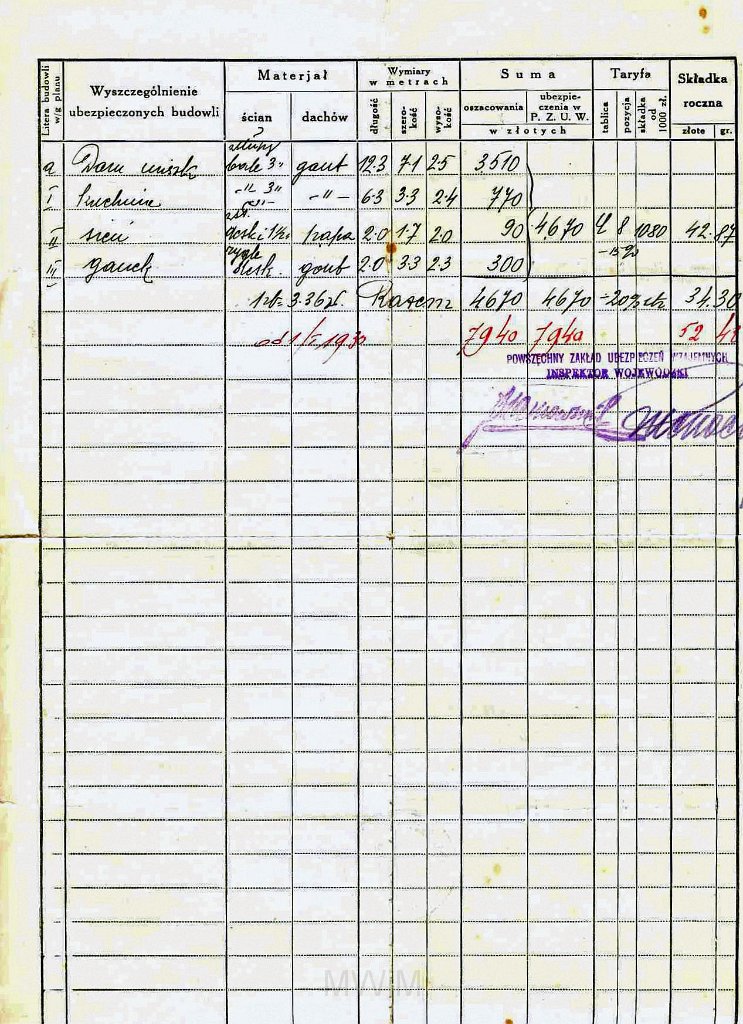 Litera budowli w/g planu
Wyszczególnienie ubezpieczonych budowli
Materjał
ścian
dachów
Wymiary w metrach
długość
szerokość
wysokość
Suma
oszacowania
ubezpieczenia w P. Z. U. W.
w złotych
Taryfa
tablica
pozycja
składka od 1000 zł.
Składka roczna
złote
gr.
a Dom mieszk bale 3" gont 12·3 7·1 2·5 3.510
I Kuchnia -"- 3" -"- 6·3 3·3 2·4 770
II sień deski papa 2·0 1·7 2·0 90 4.670 4 8 1080 42·87
-15%
III ganek rygle desk. gont 2·0 3·3 2·3 300
Razem 4670 4670 -20% 34.30
od 1/I 193 7940 7940 52
POWSZECHNY ZAKŁAD UBEZPIECZEŃ WZAJEMNYCH
INSPEKTOR WOJEWÓDZKI
MWiM